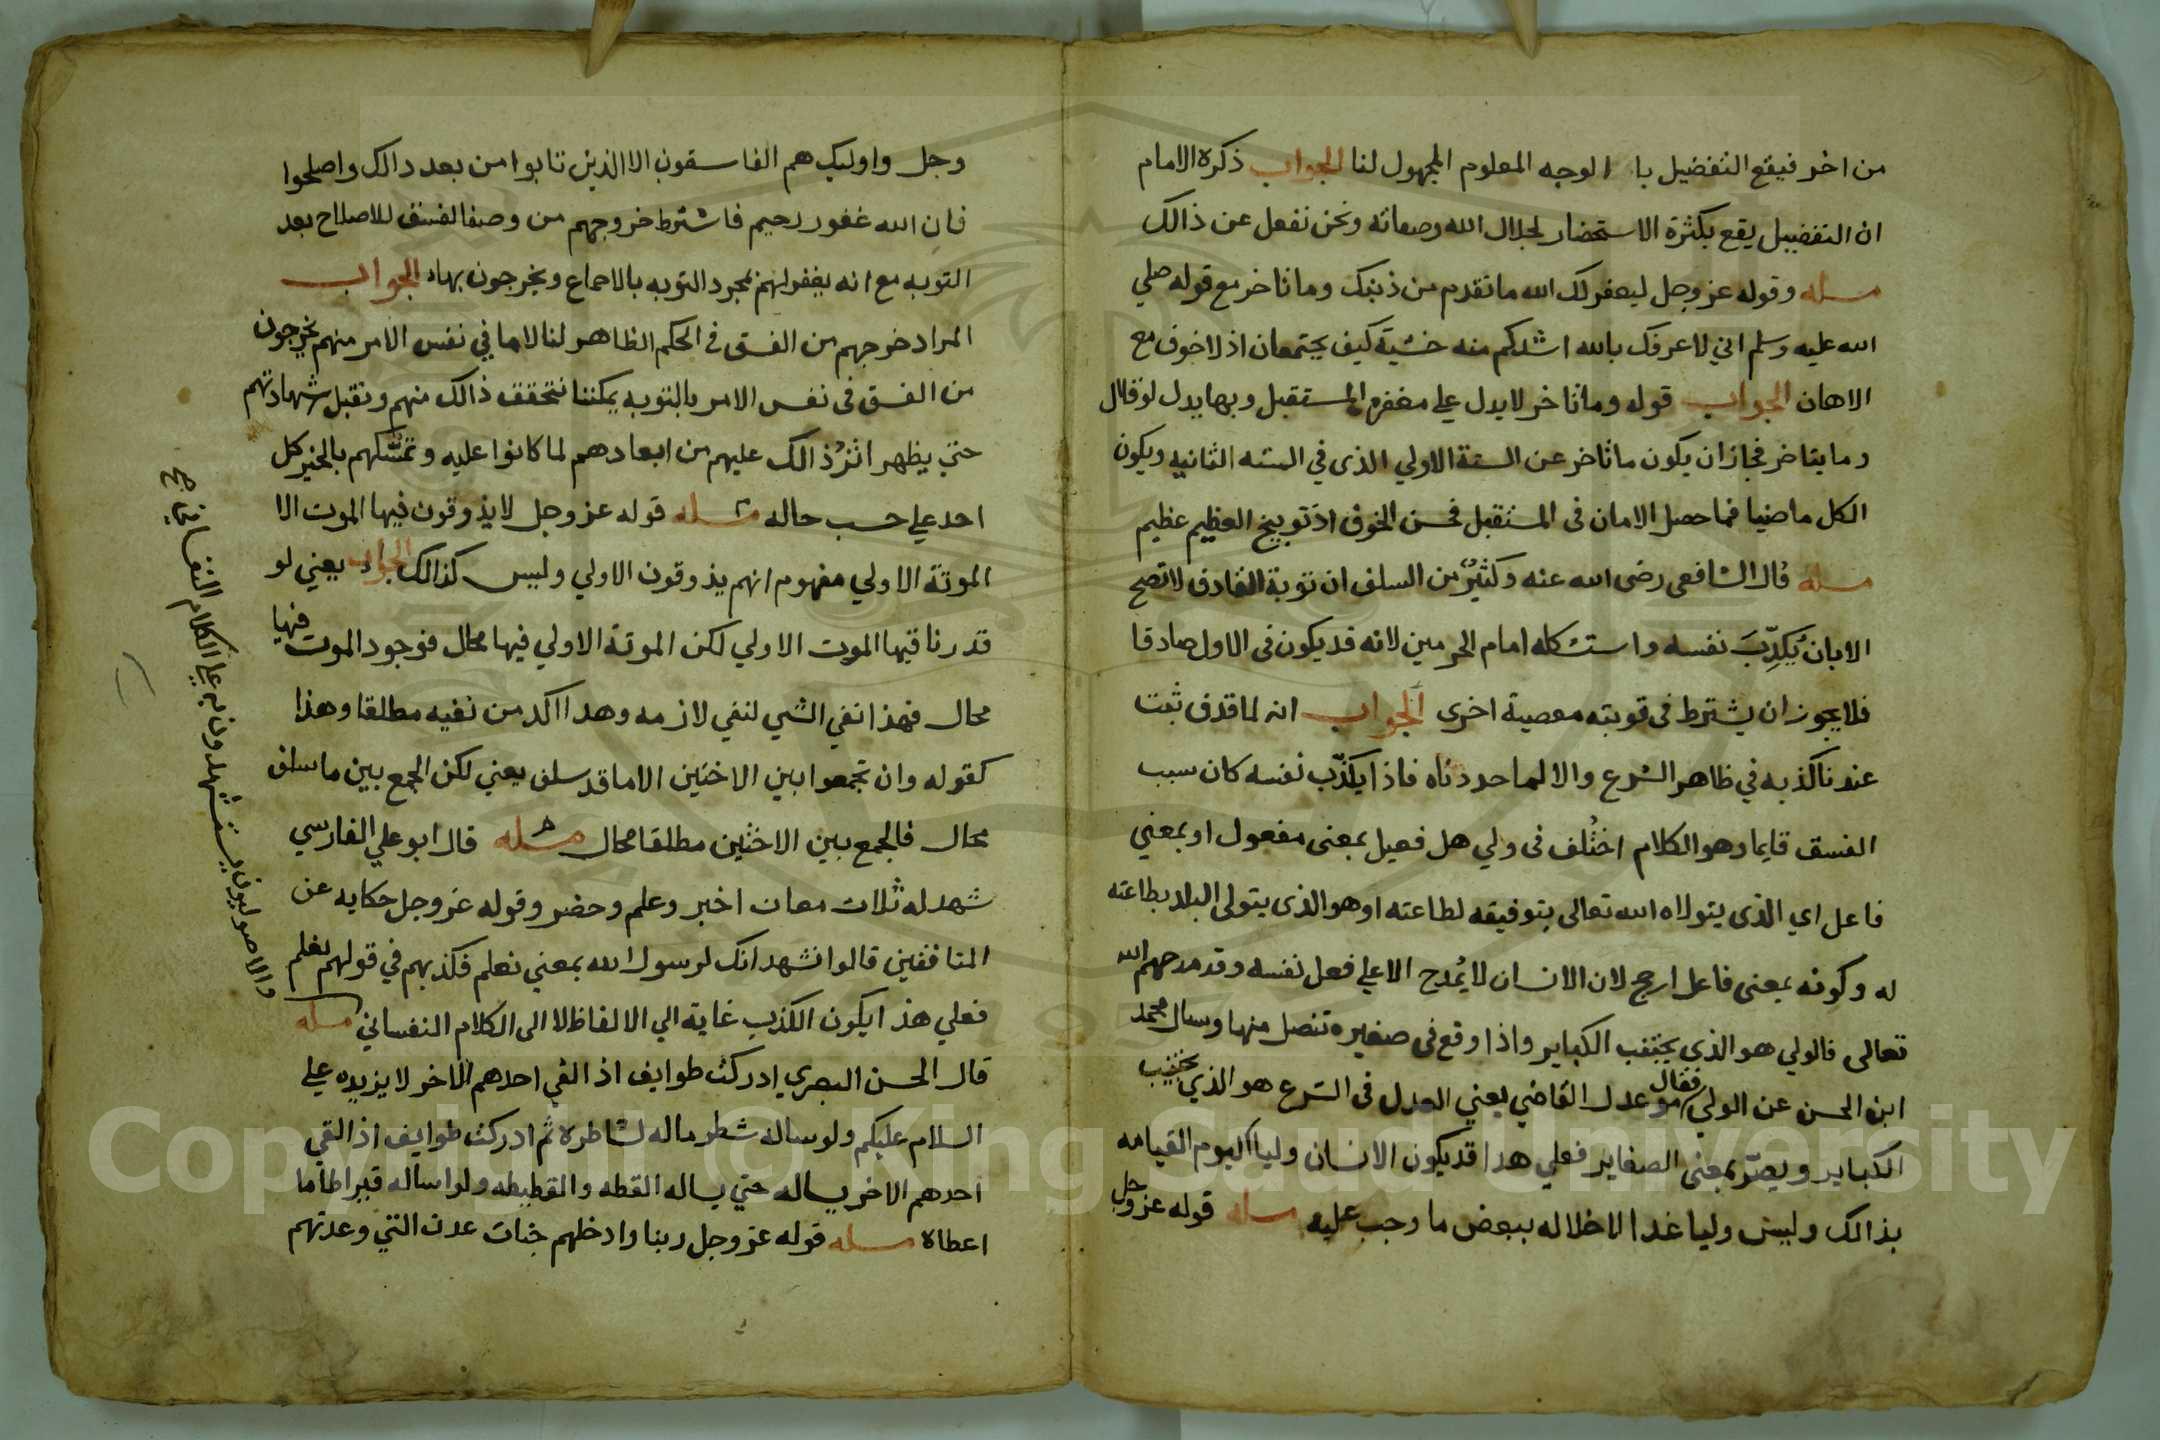 من اخر فيقع التفضيل با الوجه المعلوم المجهول لنا الجواب ذكره الامام
ان التفضيل يقع بكثرة الاستحضار لجلال الله وصفاته ونحن نغفل عن ذالك
مسله وقوله عز وجل ليغفر لك الله ما تقدم من ذنبك وما تاخر مع قوله صلي
الله عليه وسلم اني لاعرفك بالله اشدكم منه خشية كيف يجتمعان اذ لا خوف مع
الامان الجواب قوله وما تاخر لا يدل علي مغفرة المستقبل وبها يدل لو قال
وما يتاخر فجاز ان يكون ما تاخر عن السنة الاولي الذى في السنه الثانيه ويكون
الكل ماضيا فما حصل الامان فى المستقبل فحسن الخوف اذ توبيخ العظيم عظيم
مسله قال الشافعى رضى الله عنه وكثيرٌ من السلف ان توبة القاذف لا تصح
الا بان يُكذِّبَ نفسه واستشكله امام الحرمين لانه قد يكون فى الاول صادقا
فلا يجوز ان يشترط فى توبته معصية اخرى الجواب انه لما قذف ثبت
عندنا كذبه في ظاهر الشرع والا لما حددناه فاذا يكذّب نفسه كان سبب
الفسق قايما وهو الكلام اختُلف فى ولي هل فعيل بمعنى مفعول او بمعني
فاعل اي الذى يتولاه الله تعالى بتوفيقه لطاعته او هو الذى يتولى البلاد بطاعته
له وكونه بمعنى فاعل ارجح لان الانسان لا يُمدح الا علي فعل نفسه وقد مدحهم الله
تعالى فالولي هو الذي يجتنب الكباير واذا وقع فى صغيره تنصل منها وسال محمد
ابن الحسن عن الولي فقال هو عدل القاضي يعني العدل فى الشرع هو الذي يجتنب
الكباير ويصرّ بمعنى الصغاير فعلي هدا قد يكون الانسان وليا اليوم القيامه
بذالك وليس وليا غدا لاخلاله ببعض ما وجب عليه مسله قوله عز وجل
وجل واوليك هم الفاسقون الا الذين تابوا من بعد دالك واصلحوا
فان الله غفور رحيم فاشترط خروجهم من وصف الفسق للاصلاح بعد
التوبه مع انه يغفر لهم بمجرد التوبه بالاجماع ويخرجون بها الجواب
المراد خروجهم من الفسق فى الحكم الظاهر لنا لا ما في نفس الامر منهم يخرجون
من الفسق فى نفس الامر بالتوبه يمكننا نتحقق ذالك منهم ونقبل شهادتهم
حتي يظهر اثرُ ذالك عليهم من ابعادهم لما كانوا عليه وتمسّكهم بالخير كل
احد علي حسب حاله مسله قوله عز وجل لا يذوقون فيها الموت الا
الموتة الاولي مفهوم انهم يذوقون الاولي وليس كذالك الجواب يعني لو
قدرنا فيها الموت الاولي لكن الموتة الاولي فيها محال فوجود الموت فيها
محال فهذا نفي الشي لنفي لازمه وهدا اكد من نفيه مطلقا وهذا
كقوله وان تجمعوا بين الاختين الا ما قد سلف يعني لكن الجمع بين ما سلف
محال فالجمع بين الاختين مطلقا محال مسله قال ابو علي الفارسي
شهد له ثلاث معان اخبر وعلم وحضر وقوله عز وجل حكايه عن
المنافقين قالوا نشهد انك لرسول الله بمعني نعلم فكذبهم في قولهم نعلم
فعلي هذا يكون الكذب غاية الي الالفاظ لا الى الكلام النفساني مسله
قال الحسن البصري ادركت طوايف اذ القي احدهم الاخر لا يزيده علي
السلام عليكم ولو ساله شطر ماله لشاطره ثم ادركت طوايف اذ القي
احدهم الاخر يساله حتي يساله القطه والقطيطه ولو اساله قيراطا ما
اعطاه مسله قوله عز وجل ربنا وادخلهم جنات عدن التي وعدتهم
والاصوليون يستشهدون به علي الكلام النفساني
Copyright © King Saud University